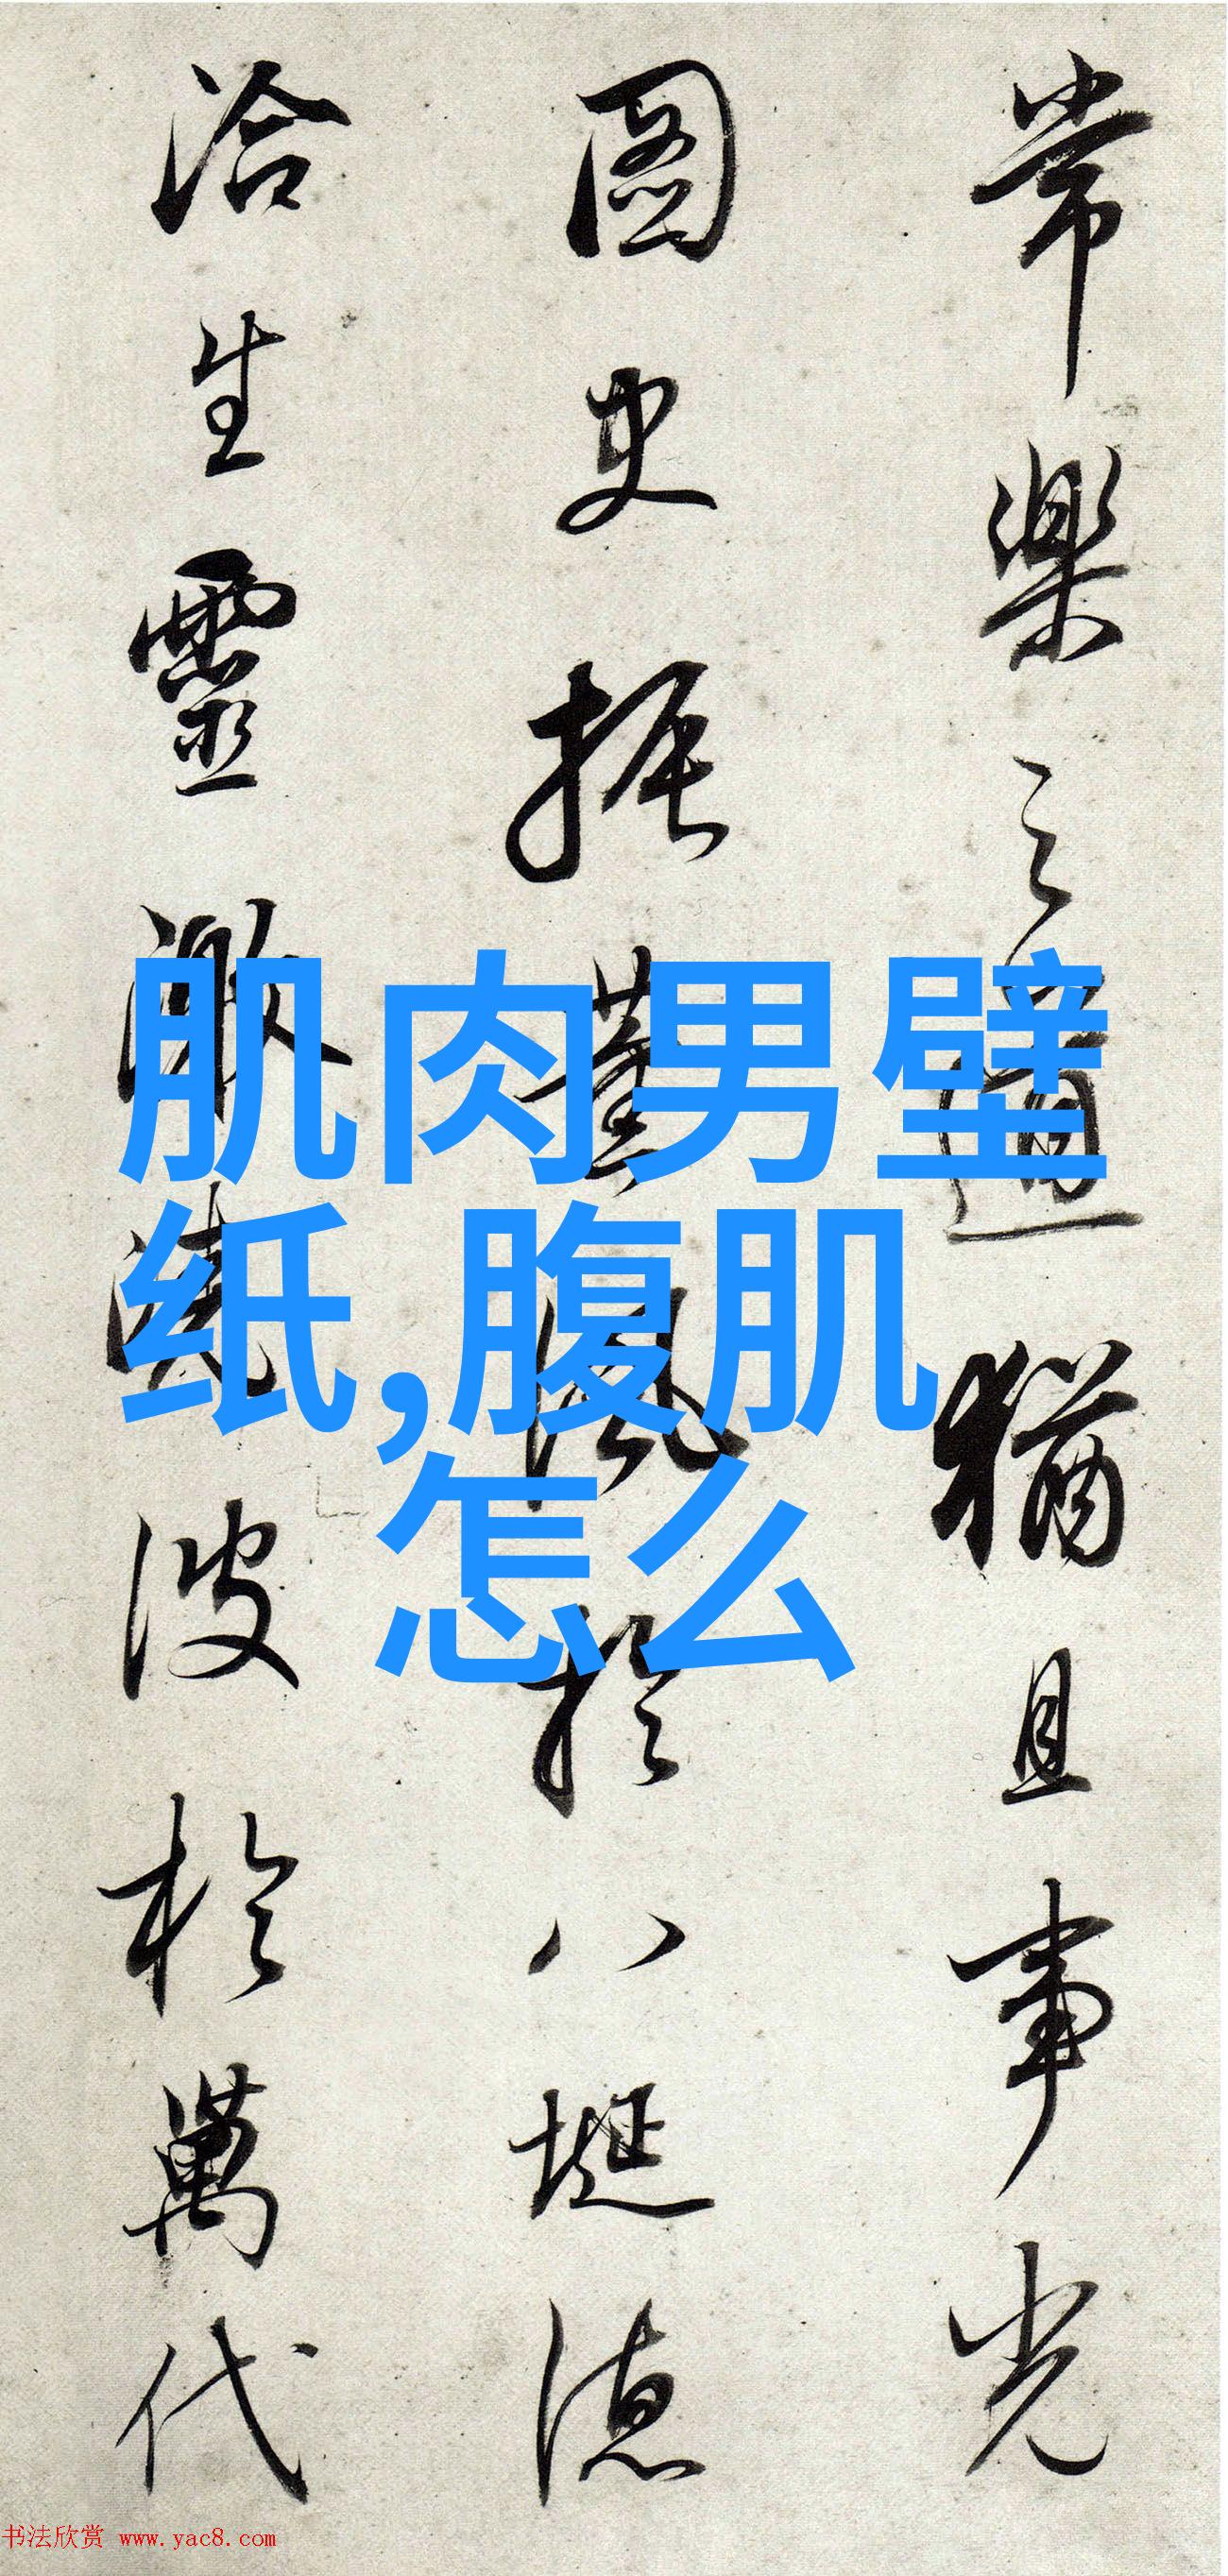 常樂之道猶且事光
圖史振薰風於八埏德
洽生靈激清波於萬代
肌肉男壁
纸,腹肌
怎么
书法欣赏 www.yac8.com